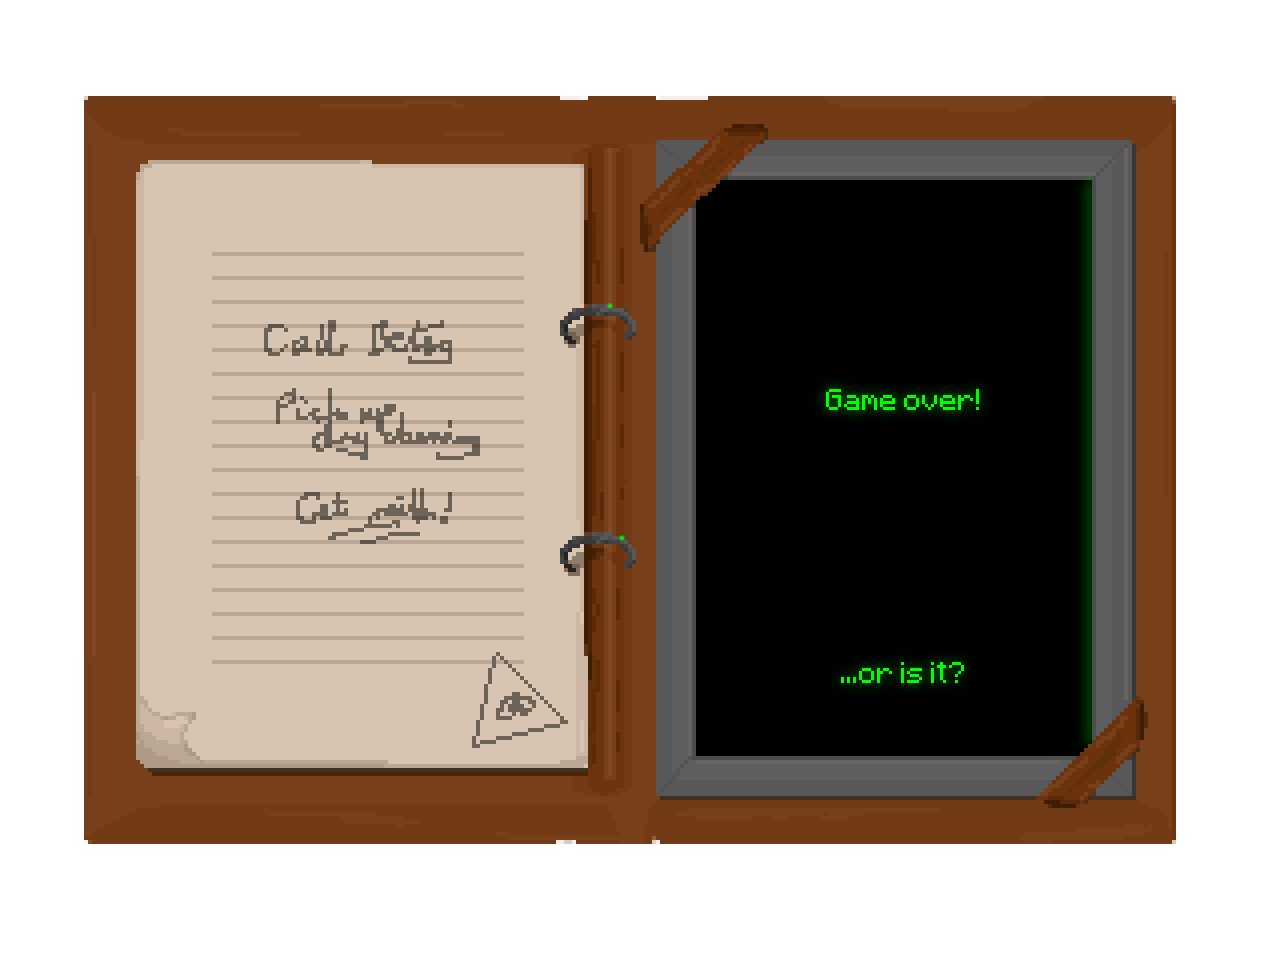 Call Betsy
Pick up
dry cleaning
Get milk!
Game over!
...or is it?